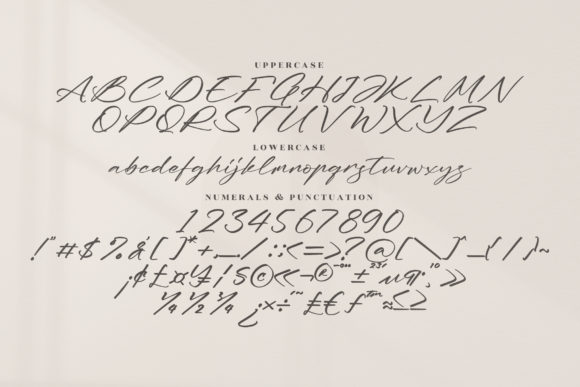 UPPERCASE
ABCDEFGHIJKLMN
OPQRSTUVWXYZ
LOWERCASE
abcdefghijklmnopqrstuvwxyz
NUMERALS & PUNCTUATION
1234567890
!"#$%&'[]*+,-./:;<=>?@[\]^_{/}~
¡¢£¤¥¦§©«¬®¯°±²³´µ¶¸¹º»
¼½¾¿×÷''"£€ƒ™≈≤≥